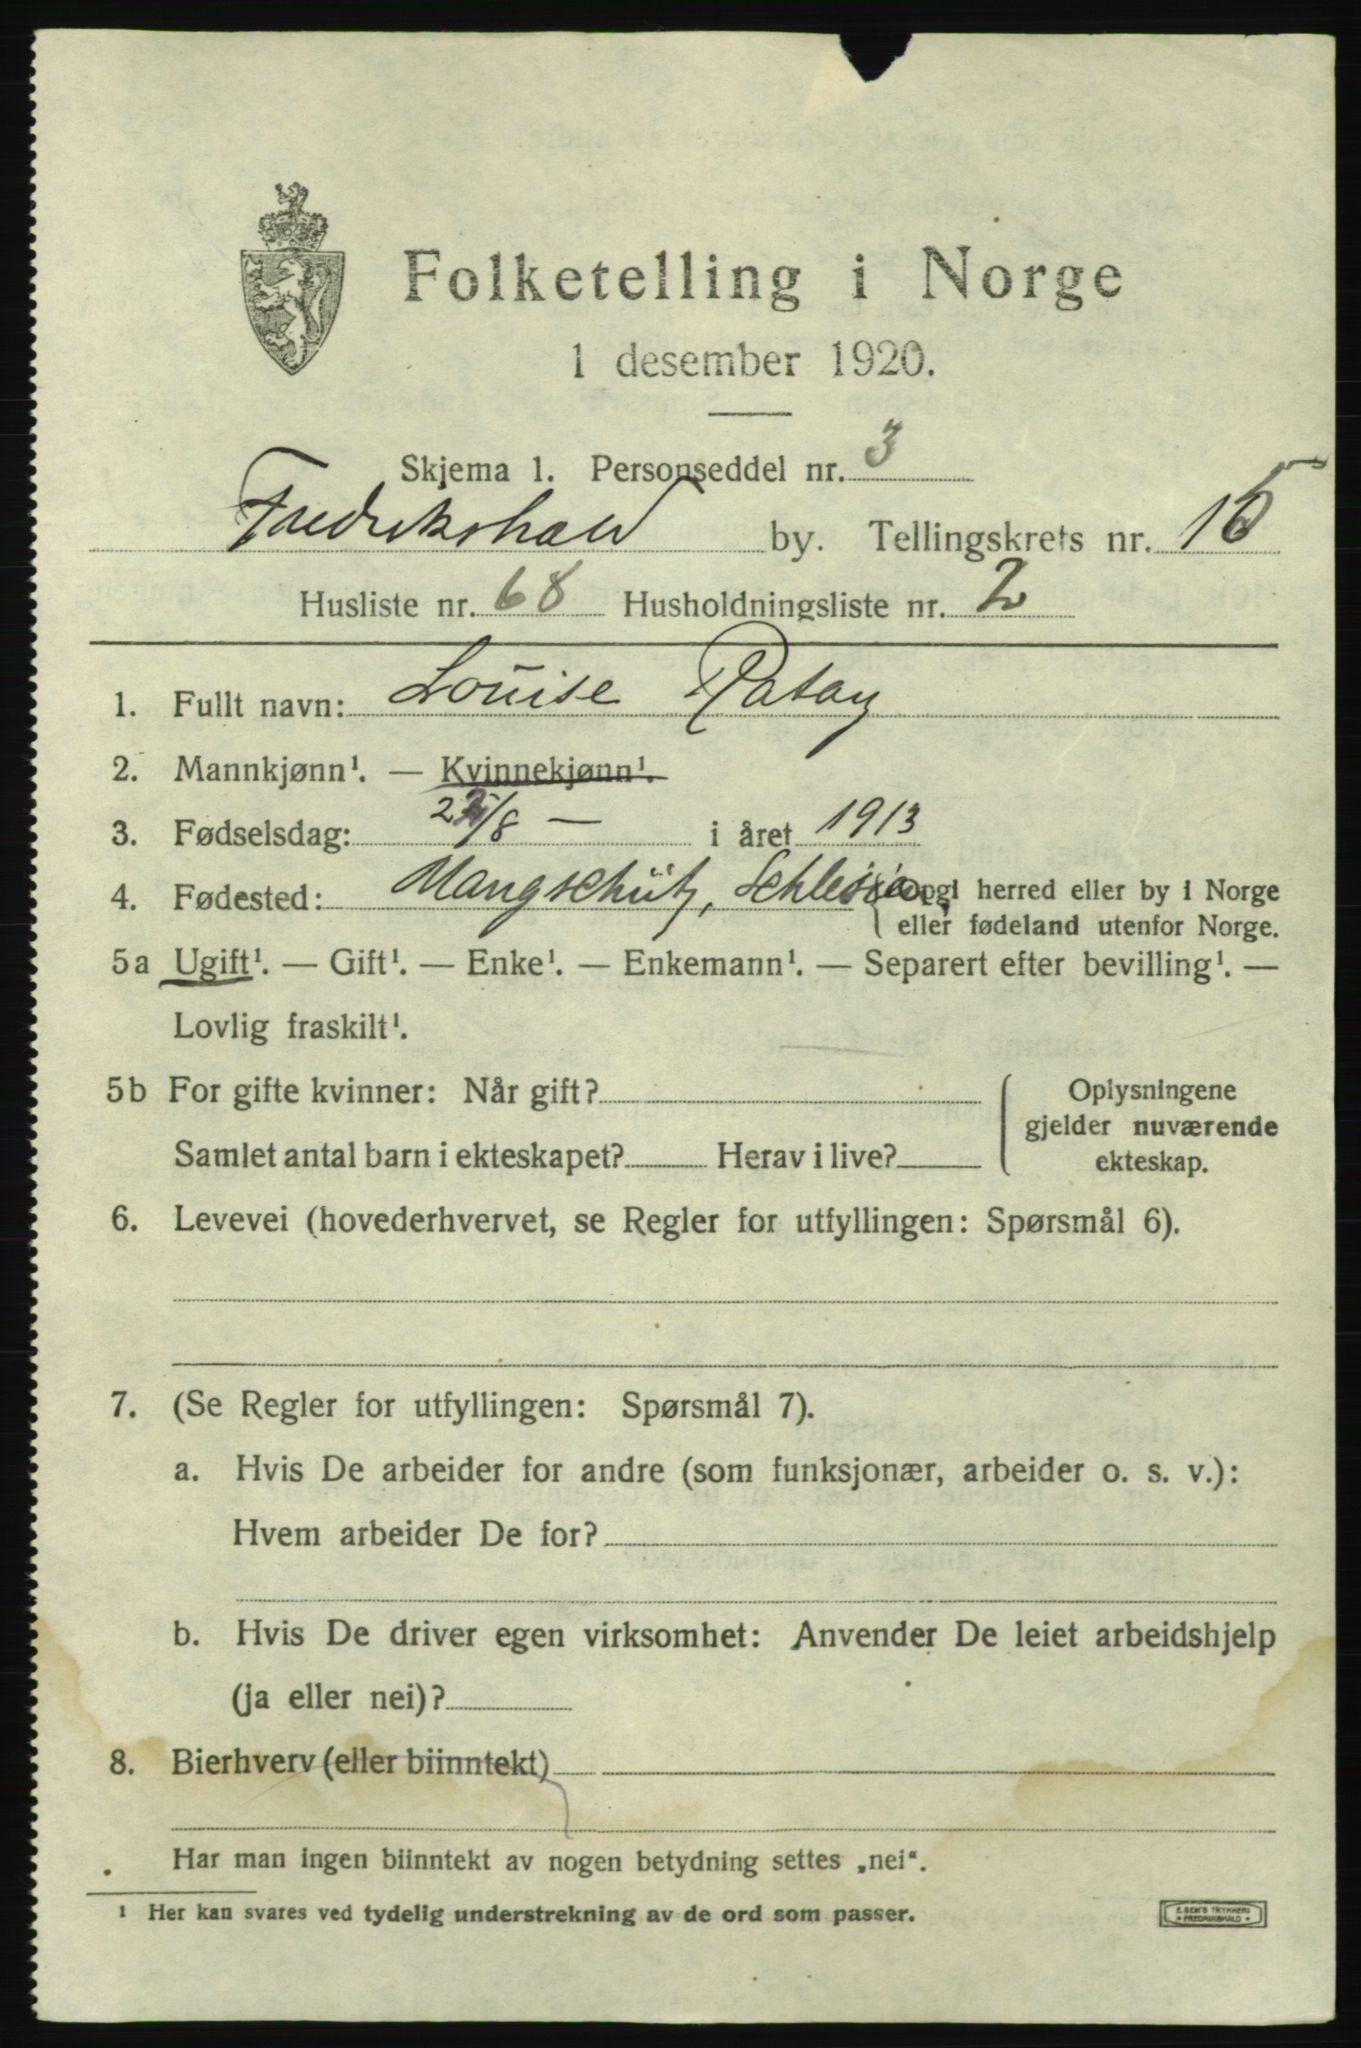 Folketelling i Norge
1 desember 1920.
Skjema 1. Personseddel nr. 3
Fredrikshald by. Tellingskrets nr. 15
Husliste nr. 68 Husholdningsliste nr. 2
1. Fullt navn: Louise Patay
2. Mannkjønn¹. — Kvinnekjønn¹.
3. Fødselsdag: /8 — i året 1913
4. Fødested: Mangschütz, Schlesien, (opgi herred eller by i Norge
eller fødeland utenfor Norge.
5a Ugift¹. — Gift¹. — Enke¹. — Enkemann¹. — Separert efter bevilling¹. —
Lovlig fraskilt¹.
5b For gifte kvinner: Når gift? Oplysningene
gjelder nuværende
Samlet antal barn i ekteskapet? Herav i live? ekteskap.
6. Levevei (hovederhvervet, se Regler for utfyllingen: Spørsmål 6).
7. (Se Regler for utfyllingen: Spørsmål 7).
a. Hvis De arbeider for andre (som funksjonær, arbeider o. s. v.):
Hvem arbeider De for?
b. Hvis De driver egen virksomhet: Anvender De leiet arbeidshjelp
(ja eller nei)?
8. Bierhverv (eller biinntekt)
Har man ingen biinntekt av nogen betydning settes „nei“.
¹ Her kan svares ved tydelig understrekning av de ord som passer.
E. SEM'S TRYKKERI
FREDRIKSHALD